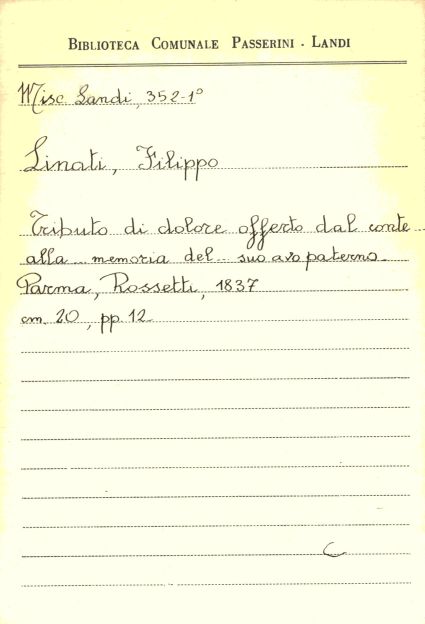 BIBLIOTECA COMUNALE PASSERINI - LANDI
Misc. Landi, 352-1°
Linati, Filippo
Tributo di dolore offerto dal conte
alla memoria del suo avo paterno.
Parma, Rossetti, 1837
cm. 20, pp. 12.
C